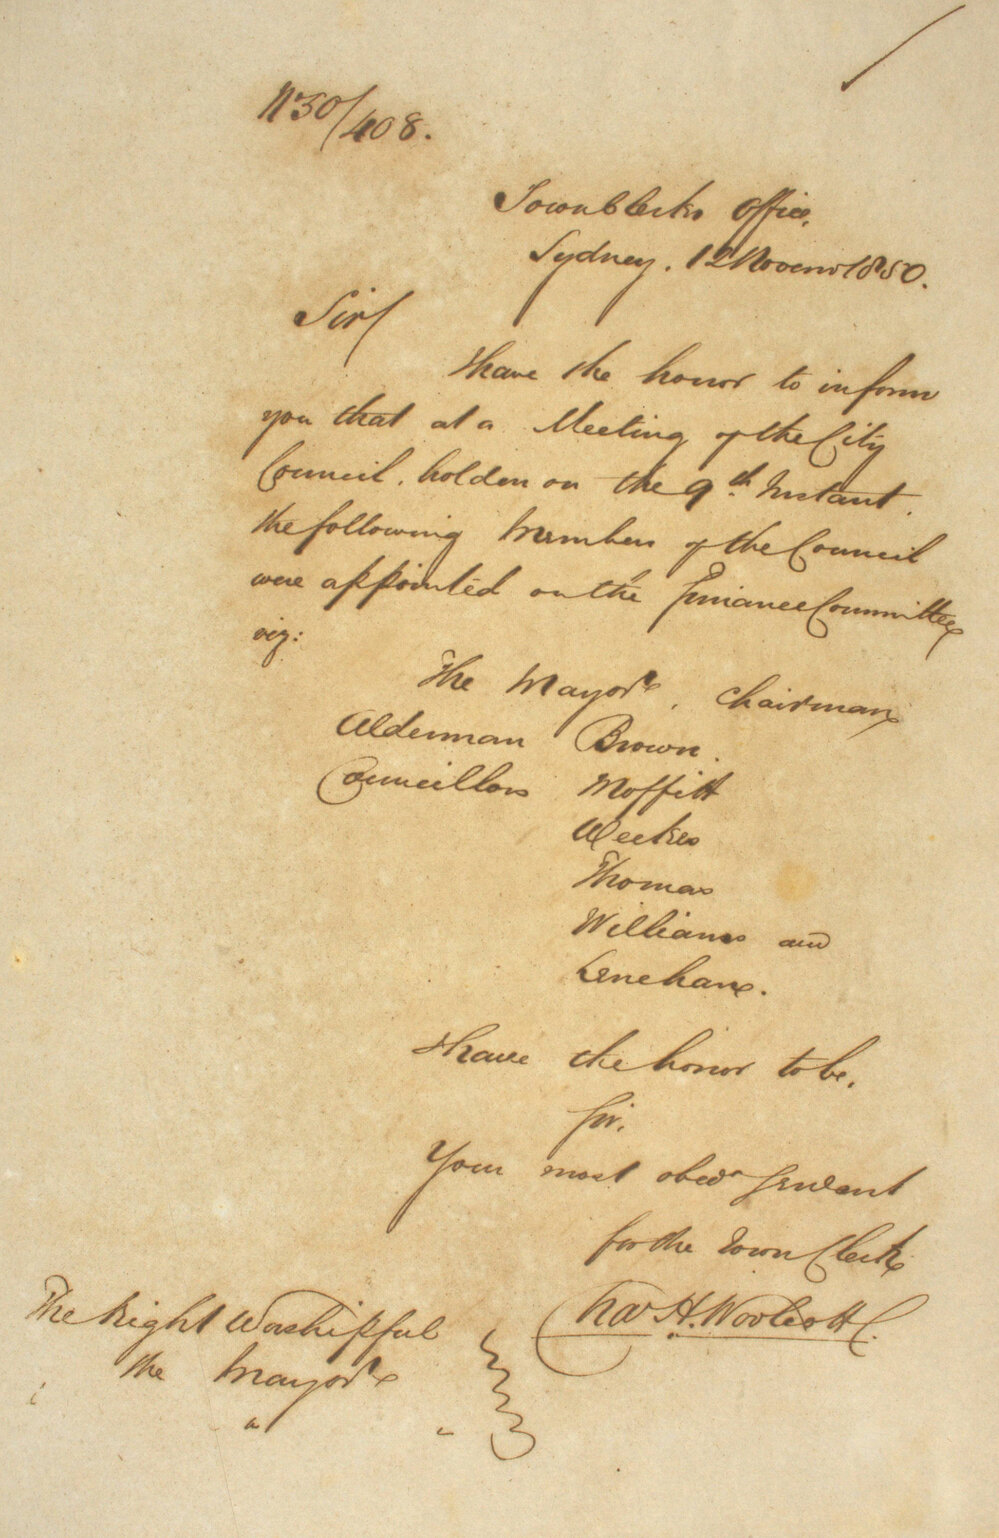 No 50/408.
Town Clerks Office,
Sydney. 12 Novemr 1850.
Sir/
I have the honor to inform
you that at a Meeting of the City
Council, holden on the 9th Instant.
the following Members of the Council
were appointed on the Finance Committee
viz:
The Mayor, Chairman
Alderman Brown.
Councillors Moffitt
Weekes
Thomas
Williams and
Lenehan.
I have the honor to be,
Sir,
Your most obedt Servant
for the Town Clerk
Chas H. Woolcott
The Right Worshipful
the Mayor
" "